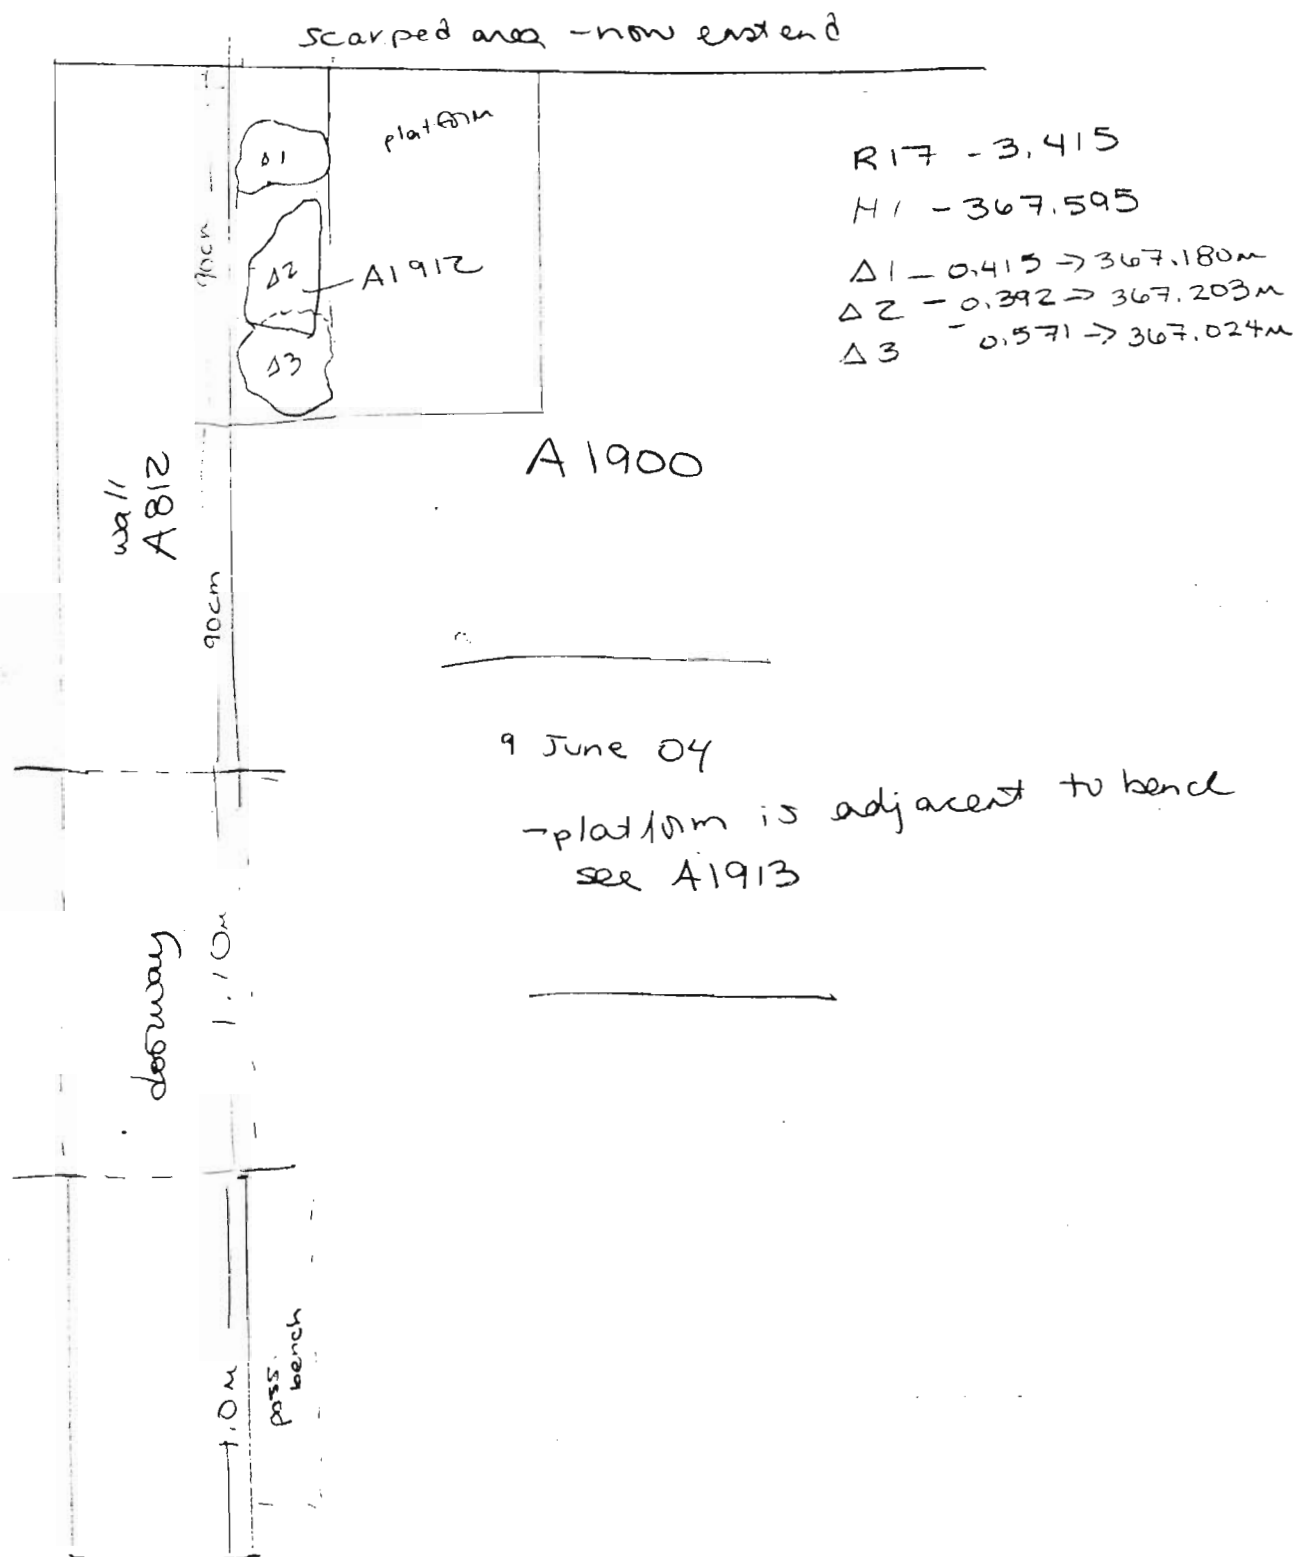 scarped area - now east end
platform
Δ1
90cm
Δ2
A1912
Δ3
R17 - 3.415
HI - 367.595
Δ1 - 0.415 -> 367.180m
Δ2 - 0.392 -> 367.203m
Δ3 - 0.571 -> 367.024m
A1900
wall
A812
90cm
9 June 04
- platform is adjacent to bench
see A1913
doorway
1.10m
1.0m
poss.
bench